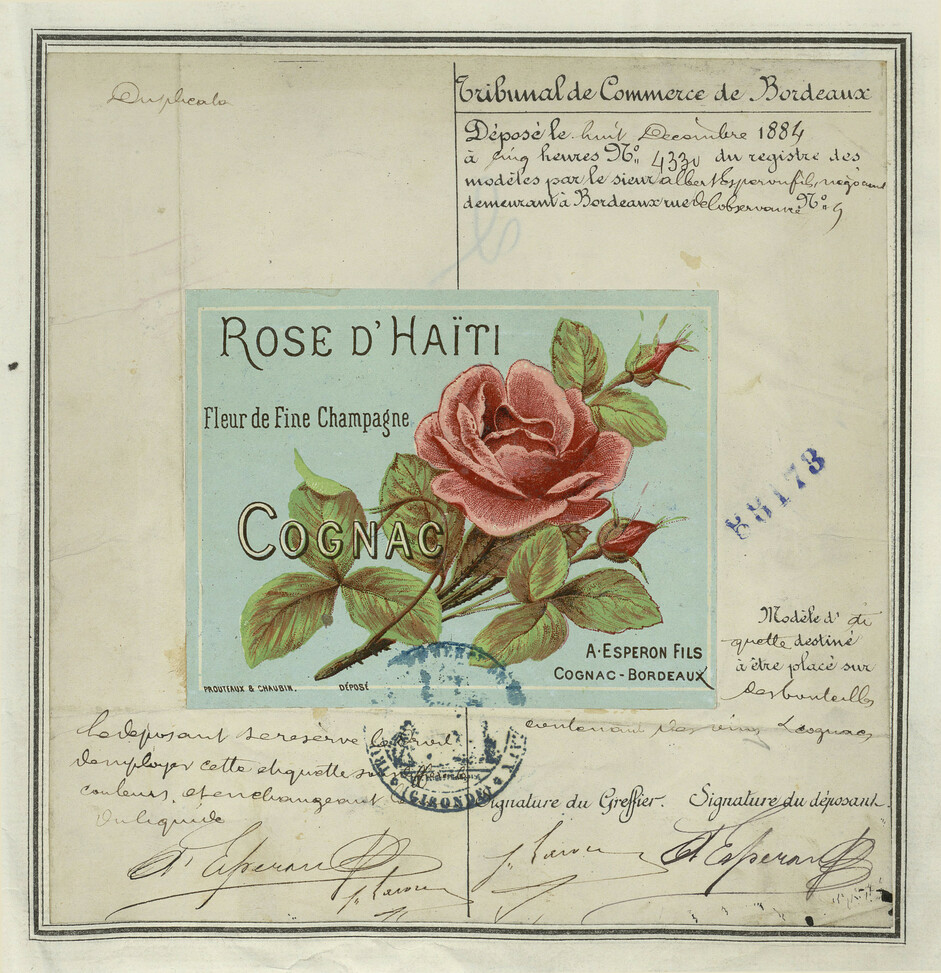 Duplicata
Tribunal de Commerce de Bordeaux
Déposé le huit Decembre 1884
à cinq heures No. 4330 du registre des
modèles par le sieur albert Esperon fils, négociant
demeurant à Bordeaux rue de l'observance No. 9
ROSE D'HAÏTI
Fleur de Fine Champagne
COGNAC
A. ESPERON FILS
COGNAC - BORDEAUX
PROUTEAUX & CHAUBIN.
DÉPOSÉ
88178
Modèle d' éti
quette destiné
à être placé sur
des bouteilles
contenant des vins & cognacs
le déposant se réserve le
d'employer cette etiquette
couleurs, et en changeant
du liquide
(GIRONDE)
Signature du Greffier.
Signature du déposant.
A Esperon
A Esperon